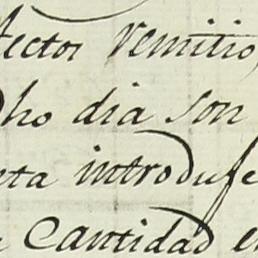 lector remitio,
dho dia son
nta introduse
e Cantidad e